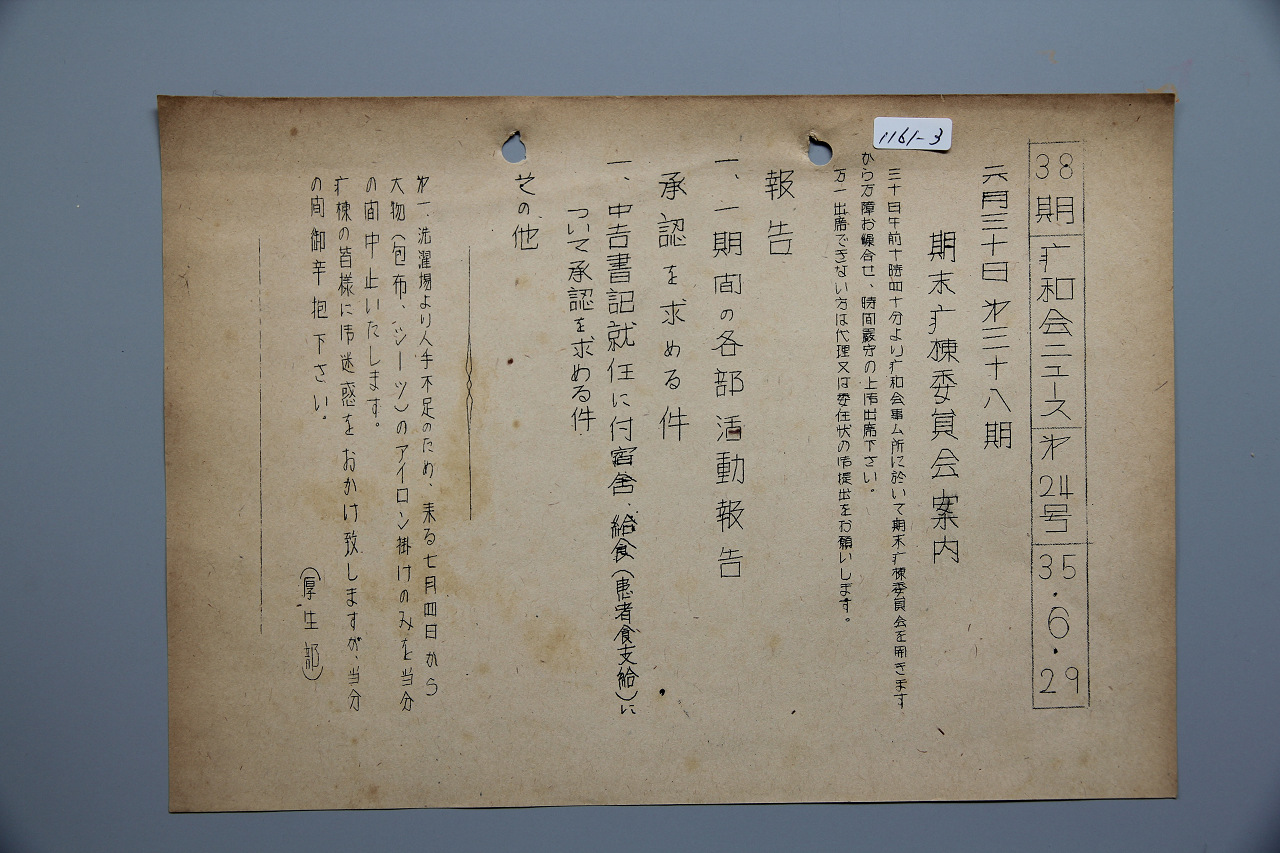 1161-3
38期 疒和会ニュース 㐧24号 35.6.29
六月三十日 㐧三十八期
期末疒棟委員会案内
三十日午前十時四十分より疒和会事ム所に於いて期末疒棟委員会を開きます
から万障お繰合せ、時間厳守の上御出席下さい。
万一出席できない方は代理又は委任状の御提出をお願いします。
報告
一、一期間の各部活動報告
承認を求める件
一、中吉書記就任に付宿舎、給食(患者食支給)に
ついて承認を求める件
その他
㐧一洗濯場より人手不足のため、来る七月四日から
大物(包布、シーツ)のアイロン掛けのみを当分
の間中止いたします。
疒棟の皆様に御迷惑をおかけ致しますが、当分
の間御辛抱下さい。
(厚生部)